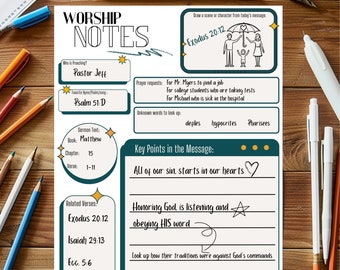 WORSHIP
NOTES
Draw a scene or character from today's message:
Exodus 20:12
Who is Preaching?
Pastor Jeff
Favorite Hymn/Psalm/Song:
Psalm 51 D
Prayer requests:
for Mr. Myers to find a job
for college students who are taking tests
for Michael who is sick in the hospital
Unknown words to look up:
defiles hypocrites Pharisees
Sermon Text:
Book:
Matthew
Chapter: 15
Verse: 1-11
Key Points in the Message:
All of our sin starts in our hearts
Honoring God, is listening and
obeying HIS word
Look up how their traditions were against God's commands
Related Verses:
Exodus 20:12
Isaiah 29:13
Ecc. 5:6